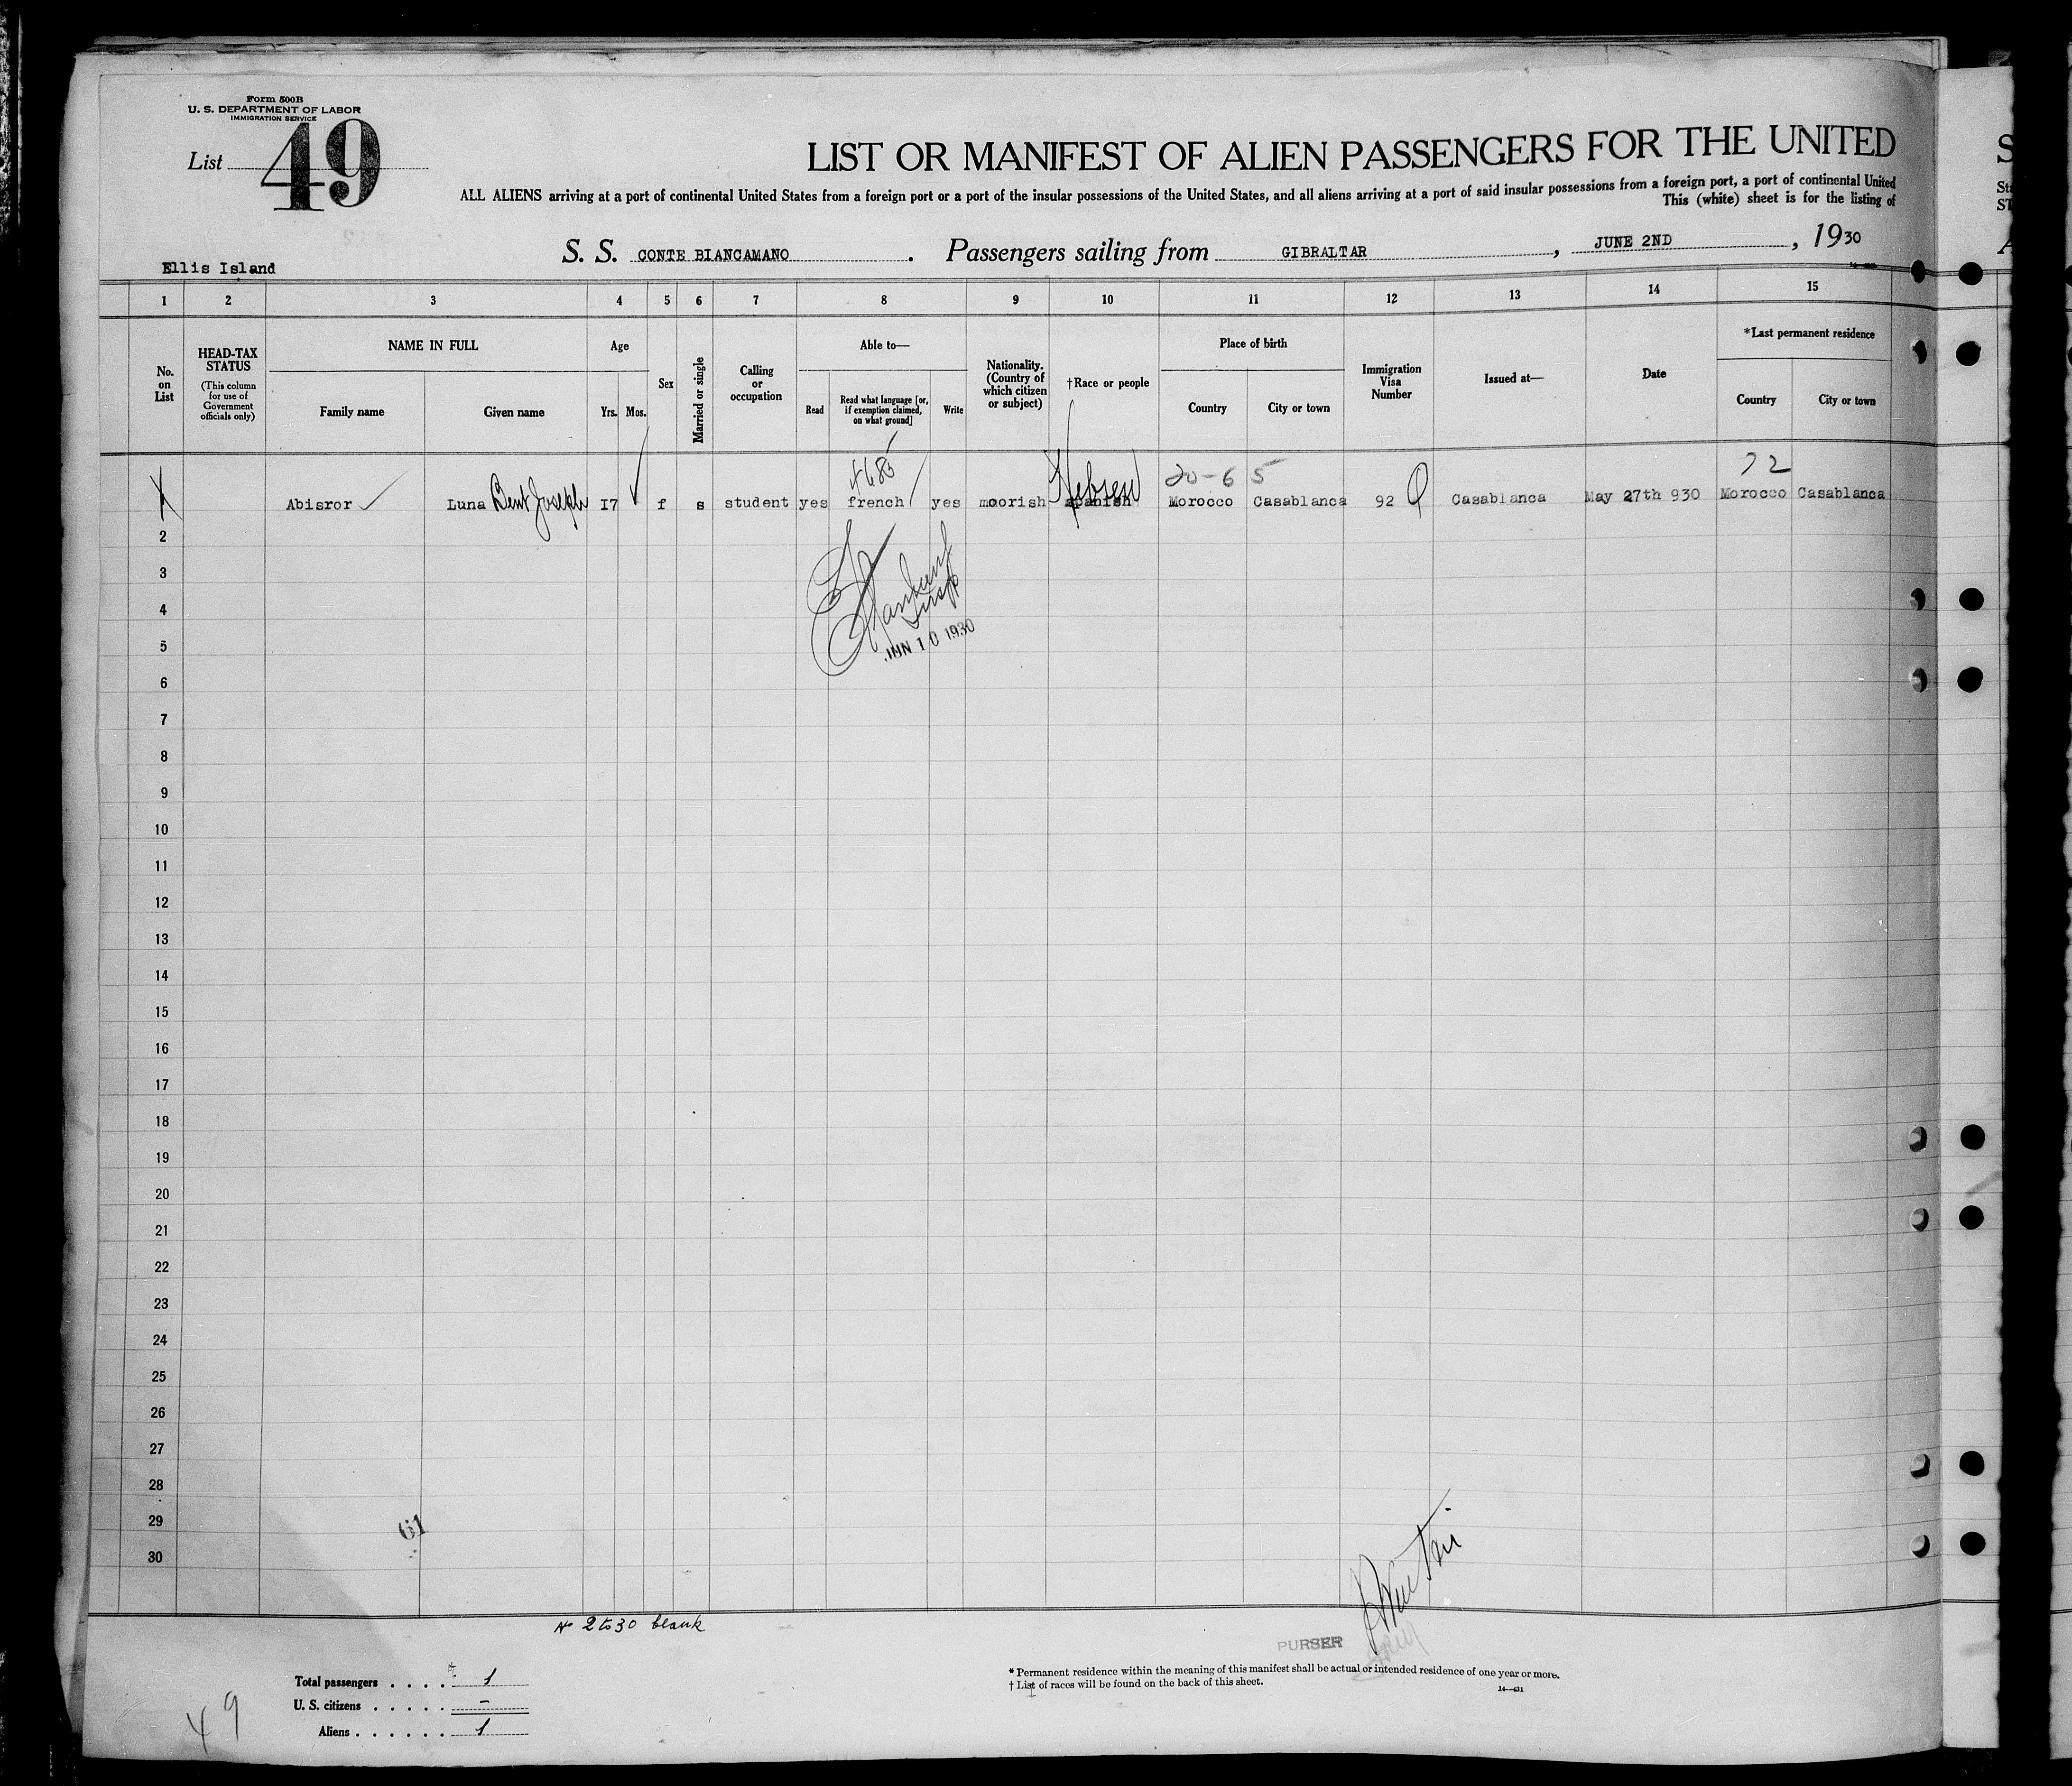 Form 500B
U. S. DEPARTMENT OF LABOR
IMMIGRATION SERVICE
List 49
LIST OR MANIFEST OF ALIEN PASSENGERS FOR THE UNITED
ALL ALIENS arriving at a port of continental United States from a foreign port or a port of the insular possessions of the United States, and all aliens arriving at a port of said insular possessions from a foreign port, a port of continental United
This (white) sheet is for the listing of
S. S. CONTE BIANCAMANO . Passengers sailing from GIBRALTAR , JUNE 2ND , 1930
Ellis Island
1 2 3 4 5 6 7 8 9 10 11 12 13 14 15
No. on List
HEAD-TAX STATUS
(This column for use of Government officials only)
NAME IN FULL
Family name Given name
Age
Yrs. Mos.
Sex
Married or single
Calling or occupation
Able to—
Read
Read what language [or, if exemption claimed, on what ground]
Write
Nationality. (Country of which citizen or subject)
†Race or people
Place of birth
Country City or town
Immigration Visa Number
Issued at—
Date
*Last permanent residence
Country City or town
20-6 5 72
Abisror Luna Bent Joseph 17 f s student yes french yes moorish spanish Hebrew Morocco Casablanca 92 Casablanca May 27th 930 Morocco Casablanca
2
3
4
5
JUN 10 1930
6
7
8
9
10
11
12
13
14
15
16
17
18
19
20
21
22
23
24
25
26
27
28
29
61
30
No 2 to 30 blank
PURSER
Total passengers . . . . 1
U. S. citizens . . . . . –
Aliens . . . . . . 1
49
* Permanent residence within the meaning of this manifest shall be actual or intended residence of one year or more.
† List of races will be found on the back of this sheet.